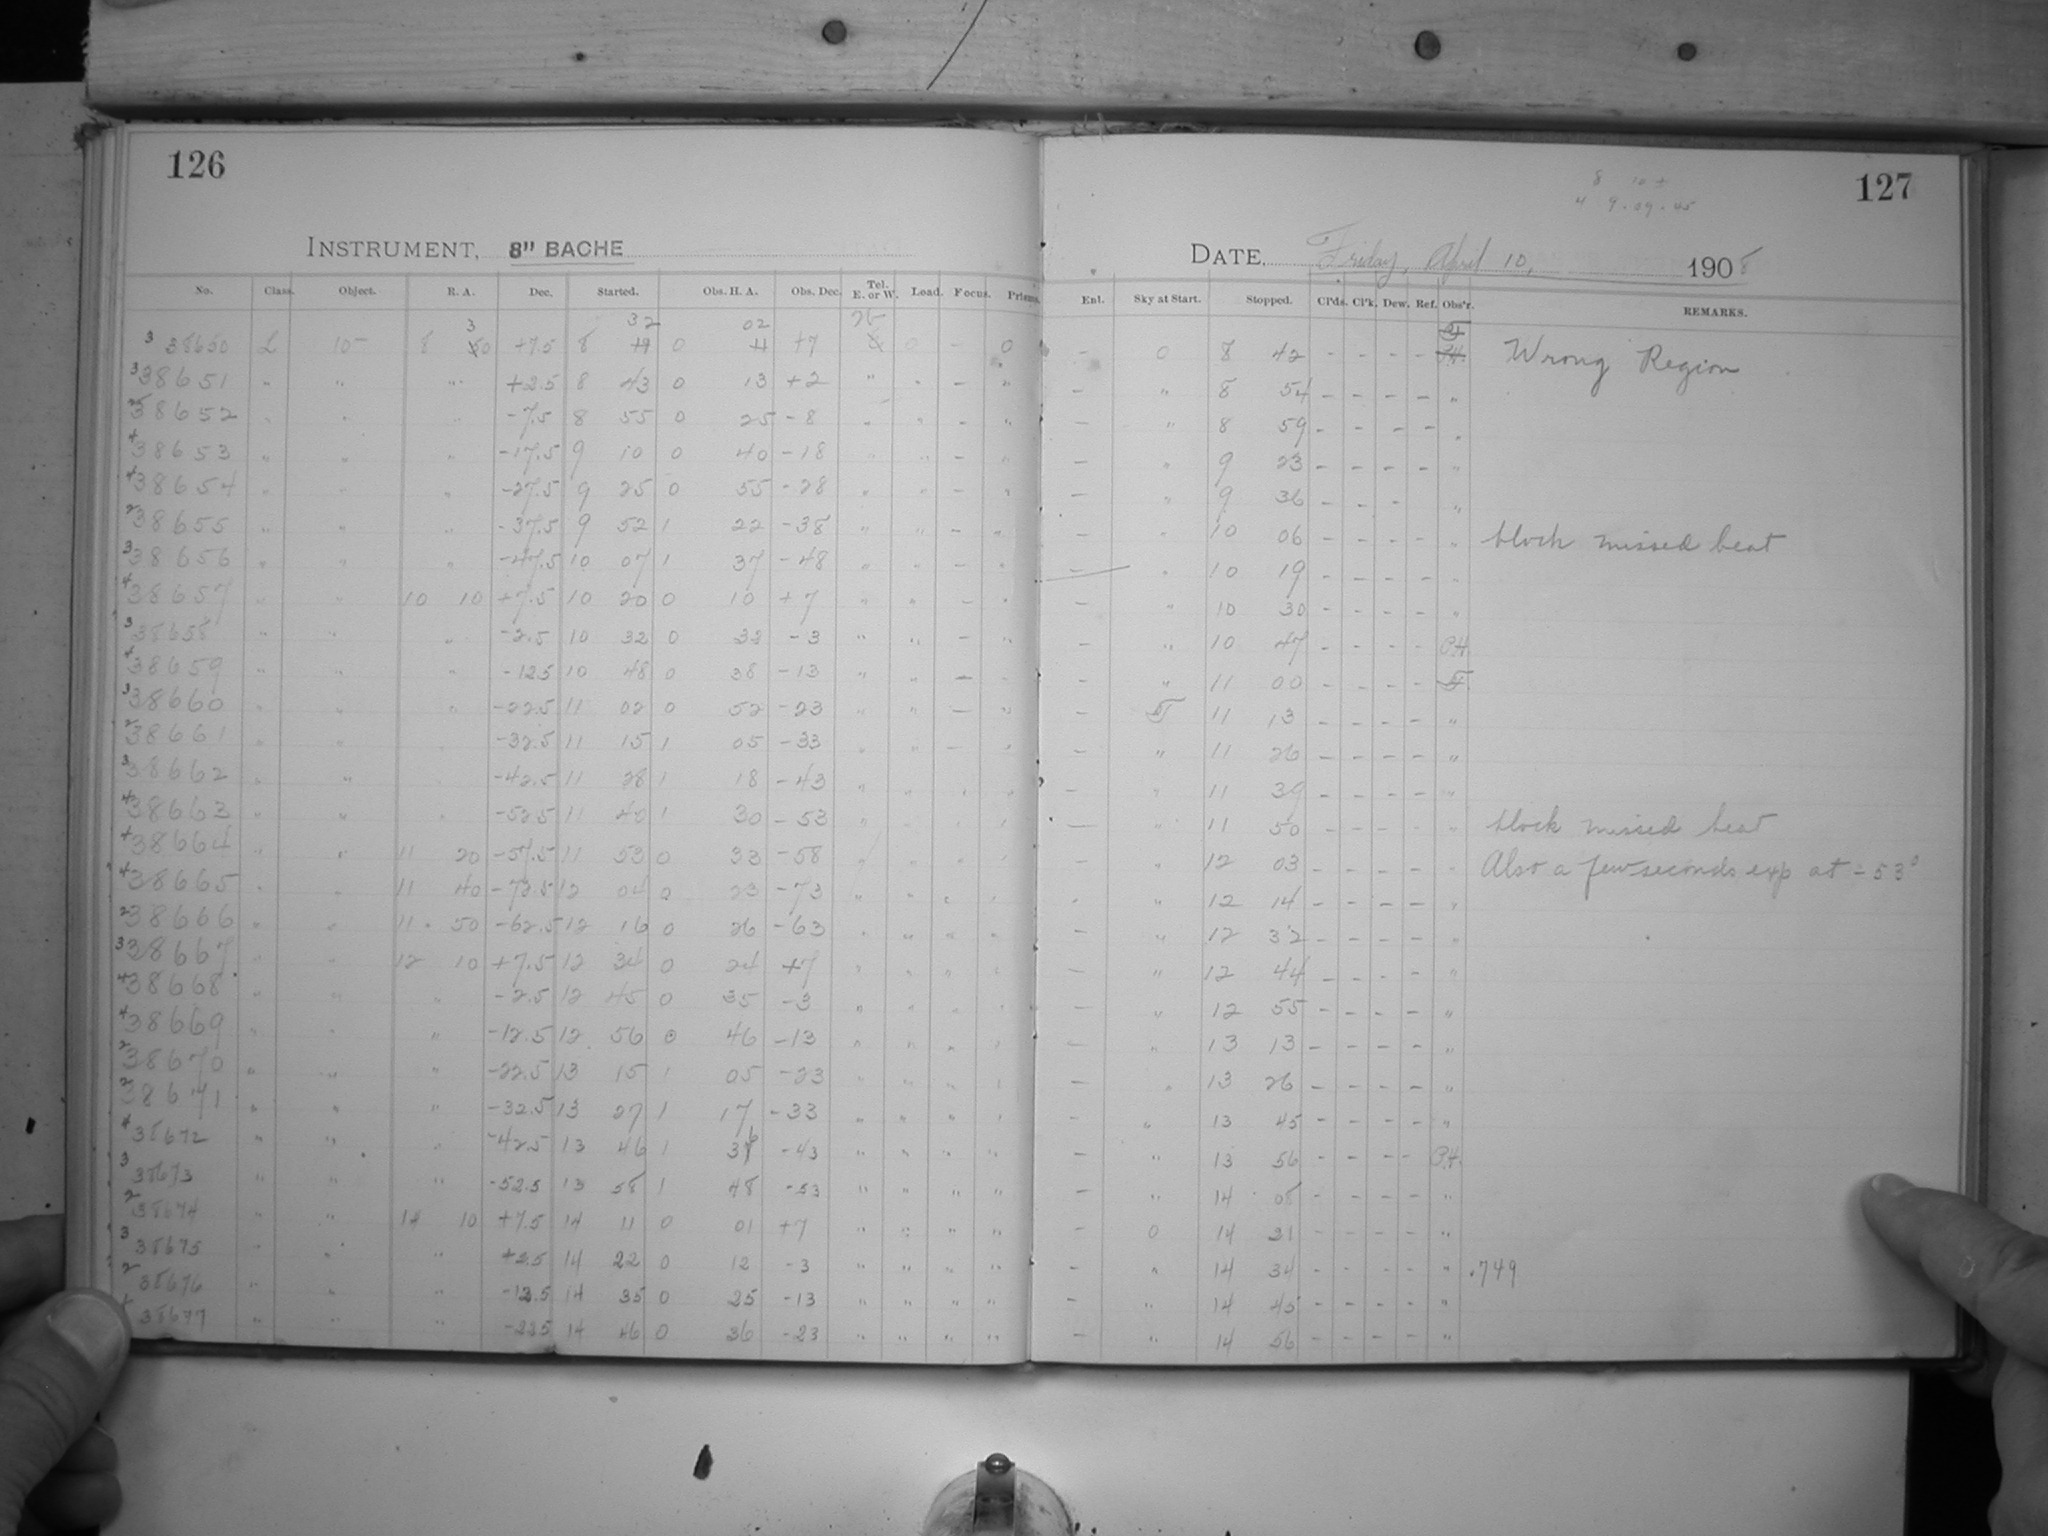 126
127
8 10 ±
4 9.09.45
INSTRUMENT, 8" BACHE
DATE, Friday, April 10, 1908
No. Class. Object. R. A. Dec. Started. Obs. H. A. Obs. Dec. Tel. E. or W. Load. Focus. Prisms. Enl. Sky at Start. Stopped. Cl'ds. Cl'k. Dew. Ref. Obs'r. REMARKS.
3 32 02
3 38650 L 10- 8 +7.5 8 0 +7 0 - 0 - 0 8 42 - - - - Wrong Region
3 38651 " " " +2.5 8 43 0 13 +2 " " - " - " 8 54 - - - - "
38652 " " " -7.5 8 55 0 25 -8 " " - " - " 8 59 - - - "
4 38653 " " " -17.5 9 10 0 40 -18 " " - " - " 9 23 - - - - "
4 38654 " " " -27.5 9 25 0 55 -28 " " - " - " 9 36 - - - "
2 38655 " " " -37.5 9 52 1 22 -38 " " - " - " 10 06 - - - - " block missed beat
3 38656 " " " -47.5 10 07 1 37 -48 " " - " - " 10 19 - - - - "
4 38657 " " 10 10 +7.5 10 20 0 10 +7 " " - " - " 10 30 - - - - "
3 38658 " " " -2.5 10 32 0 22 -3 " " - " - " 10 47 - - - - P.H.
4 38659 " " " -12.5 10 48 0 38 -13 " " - " - " 11 00 - - - -
3 38660 " " " -22.5 11 02 0 52 -23 " " - " - 11 13 - - - - "
2 38661 " " " -32.5 11 15 1 05 -33 " " - " - " 11 26 - - - - "
3 38662 " " " -42.5 11 28 1 18 -43 " " " " - " 11 39 - - - - "
4 38663 " " " -52.5 11 40 1 30 -53 " " " " - " 11 50 - - - - " block missed beat
+ 38664 " " 11 20 -57.5 11 53 0 33 -58 " " " " - " 12 03 - - - - " Also a few seconds exp at -53°
4 38665 " " 11 40 -72.5 12 04 0 23 -73 " " " " - " 12 14 - - - - "
2 38666 " " 11 50 -62.5 12 16 0 26 -63 " " " " - " 12 32 - - - - "
3 38667 " " 12 10 +7.5 12 34 0 24 +7 " " " " - " 12 44 - - - - "
4 38668 " " " -2.5 12 45 0 35 -3 " " " " - " 12 55 - - - - "
4 38669 " " " -12.5 12 56 0 46 -13 " " " " - " 13 13 - - - - "
2 38670 " " " -22.5 13 15 1 05 -23 " " " " - " 13 26 - - - - "
2 38671 " " " -32.5 13 27 1 17 -33 " " " " - " 13 45 - - - - "
4 38672 " " " -42.5 13 46 1 36 -43 " " " " - " 13 56 - - - - P.H.
3 38673 " " " -52.5 13 58 1 48 -53 " " " " - " 14 08 - - - - "
2 38674 " " 14 10 +7.5 14 11 0 01 +7 " " " " - 0 14 21 - - - - "
3 38675 " " " 14 22 0 12 -3 " " " " - " 14 34 - - - - " .749
2 38676 " " " -12.5 14 35 0 25 -13 " " " " - " 14 45 - - - - "
+ 38677 " " " -22.5 14 46 0 36 -23 " " " " - " 14 56 - - - - "